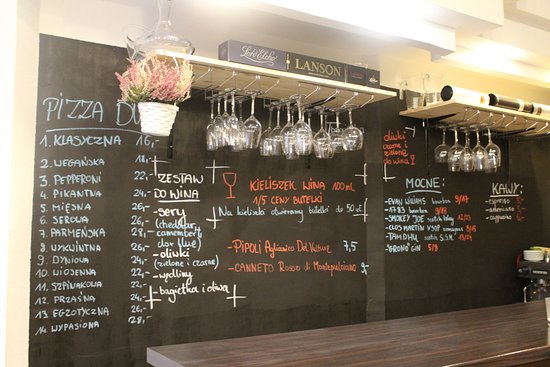 Lord Elcho
LANSON
PIZZA DU
1. KLASYCZNA 16,-
2. WEGAŃSKA 18,-
3. PEPPERONI 22,-
4. PIKANTNA 24,-
5. MIĘSNA
6. SEROWA
7. PARMEŃSKA
8. WYKWINTNA
9. DYNIOWA
10. WIOSENNA
11. SZPINAKOWA
12. PRZAŚNA
13. EGZOTYCZNA
14. WYPASIONA
ZESTAW
DO WINA
- sery
(cheddar,
camembert,
dor blue)
- oliwki
(zielone i czarne)
- wędliny
- bagietka i oliwa
KIELISZEK WINA 100 mL
1/5 CENY BUTELKI
Na kieliszki otwieramy butelki do 50 zł.
- PIPOLI Aglianico Del Vulture 7,5
- CANNETO Rosso di Montepulciano 9,-
oliwki
czarne i
zielone
do wina
MOCNE:
- EVAN WILLIAMS bourbon 9/17
- 1783 bourbon
- SMOKEY JOE scotch islay 12/23
- CLOS MARTIN VSOP
- TAMDHU scotch S.S.M. 13/24
- BRONO GIN 5/8
KAWY:
- espresso
- americano
- cappuccino